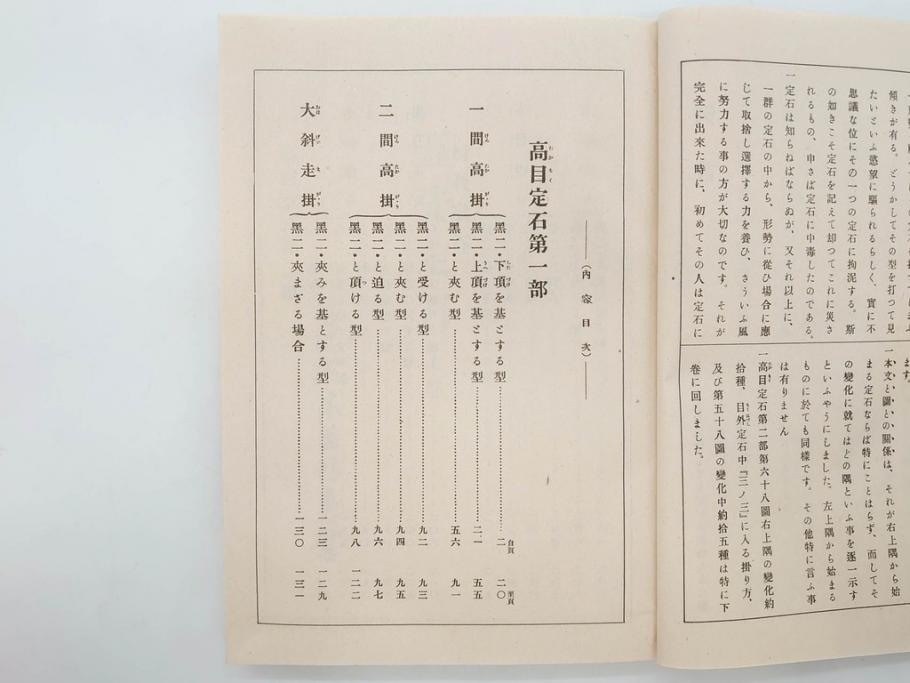 傾きが有る。どうかしてその型を打つて見
たいといふ慾望に驅られるらしく、實に不
思議な位にその一つの定石に拘泥する。斯
の如きこそ定石を記えて却つてこれに災さ
れるもの、申さば定石に中毒したのである。
一定石は知らねばならぬが、又それ以上に、
一群の定石の中から、形勢に從ひ場合に應
じて取捨し選擇する力を養ひ、さういふ風
に努力する事の方が大切なのです。それが
完全に出來た時に、初めてその人は定石に
ます。
一本文と圖との關係は、それが右上隅から始
まる定石ならば特にことはらず、而してそ
の變化に就てはどの隅といふ事を逐一示す
といふやうにしました、左上隅から始まる
ものに於ても同樣です。その他特に言ふ事
は有りません
一高目定石第二部第六十八圖右上隅の變化約
拾種、目外定石中『三ノ三』に入る掛り方、
及び第五十八圖の變化中約拾五種は特に下
卷に回しました。
（內容目次）
高目定石第一部
一間高掛
黑二・下頂を基とする型 二 二〇
白頁 黑頁
黑二・上頂を基とする型 二一 五五
黑二・と夾む型 五六 九一
二間高掛
黑二・と受ける型 九二 九三
黑二・と夾む型 九四 九五
黑二・と迫る型 九六 九七
黑二・と頂ける型 九八 一二二
大斜走掛
黑二・夾みを基とする型 一二三 一二九
黑二・夾まざる場合 一三〇 一三一